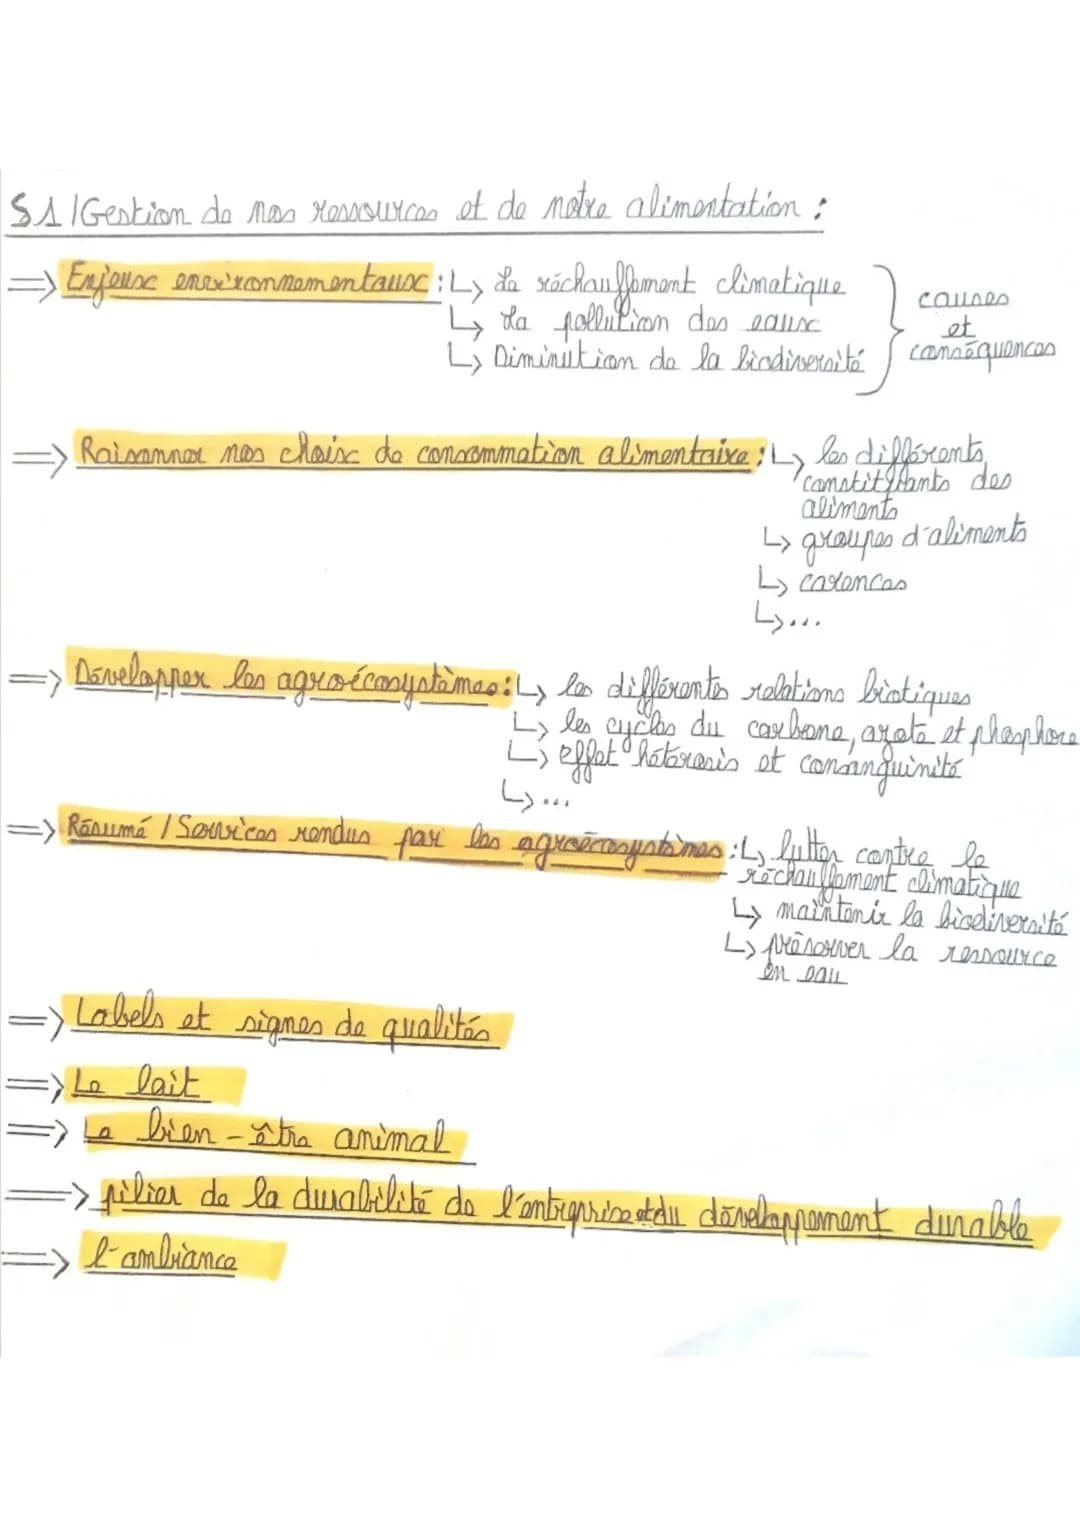 S1/Gestion de nos ressources et de notre alimentation :
=> Enjeux environnementaux : ↳ Le réchauffement climatique
↳ La pollution des eaux
↳ Diminution de la biodiversité
causes
et
conséquences
=> Raisonner nos choix de consommation alimentaire : ↳ les différents
constituants des
aliments
↳ groupes d'aliments
↳ carences
↳...
=> Développer les agroécosystèmes : ↳ les différentes relations biotiques
↳ les cycles du carbone, azote et phosphore
↳ effet hétérosis et consanguinité
↳...
=> Résumé / Services rendus par les agroécosystèmes : ↳ lutter contre le
réchauffement climatique
↳ maintenir la biodiversité
↳ préserver la ressource
en eau
=> Labels et signes de qualités
=> Le lait
=> Le bien-être animal
=> pilier de la durabilité de l'entreprise et du développement durable
=> l'ambiance